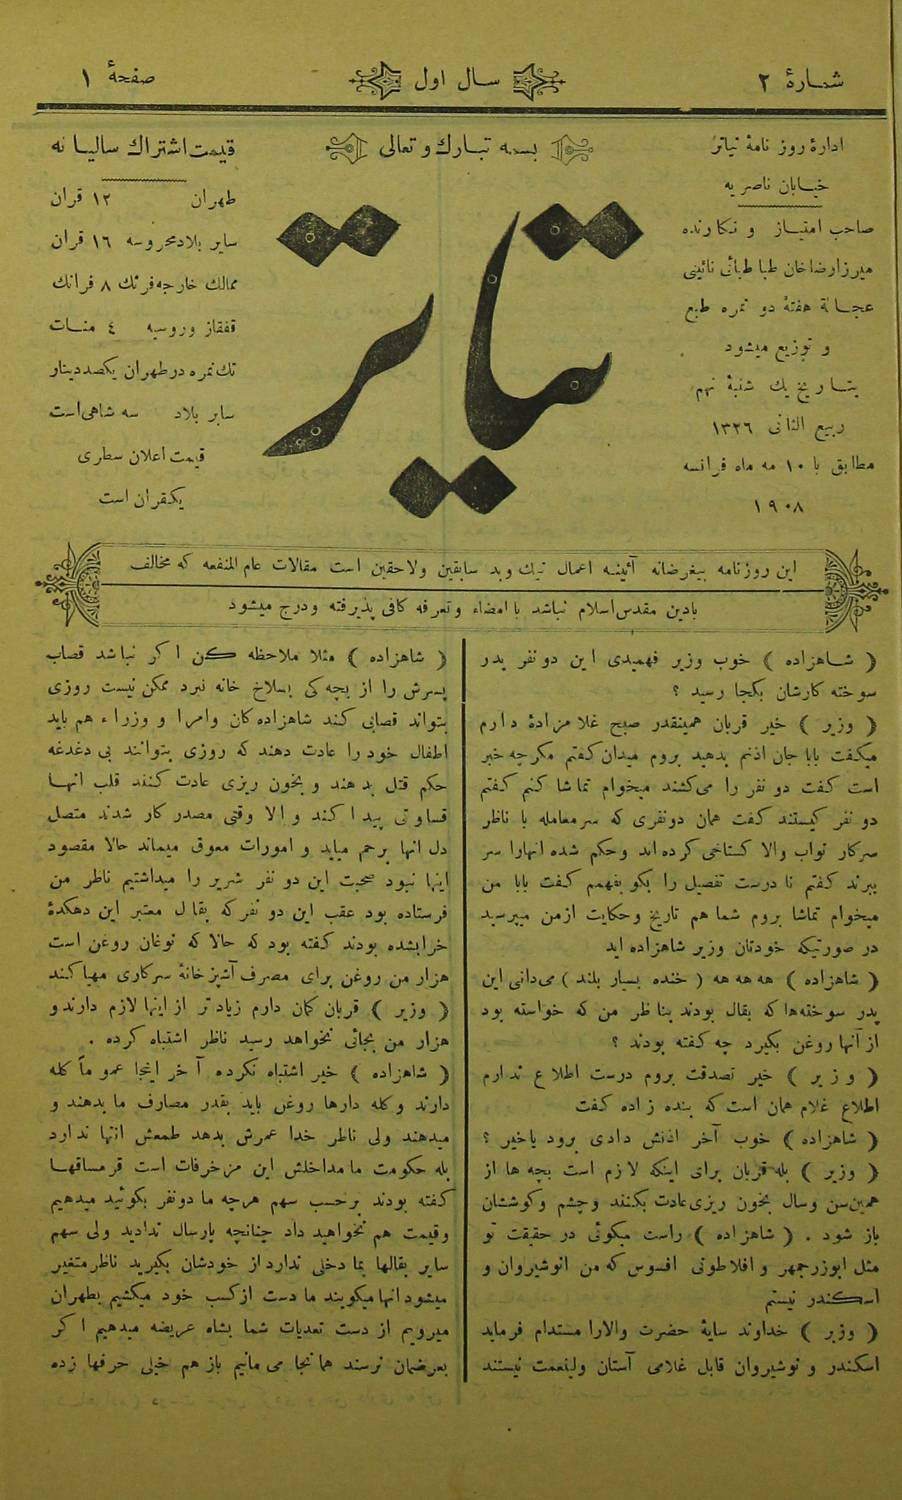 شمارۀ ۲
سال اول
صفحۀ ۱
ادارۀ روز نامۀ تیاتر
خیابان ناصریه
صاحب امتیاز و نکارنده
میرزارضاخان طباطبائی نائینی
عجالة هفتۀ دو نمره طبع
و توزیع میشود
بتاریخ یك شنبۀ نهم
ربیع الثانی ۱۳۲۶
مطابق با ۱۰ مه ماه فرانسه
۱۹۰۸
بسمه تبارك و تعالی
تیاتر
قیمت اشتراك سالیانه
طهران ۱۲ قران
سایر بلادمحروسه ۱٦ قران
ممالك خارجه فرنك ۸ فرانك
قفقاز وروسیه ٤ منات
تك نمره در طهران یکصددینار
سایر بلاد سه شاهی است
قیمت اعلان سطری
یکقران است
این روزنامه بیغرضانه آئینه اعمال نیك وبد سابقین ولاحقین است مقالات عام المنفعه که مخالف
بادین مقدس اسلام نباشد با امضاء وتعرفه کافی پذیرفته ودرج میشود
( شاهزاده ) خوب وزیر فهمیدی این دونفر پدر
سوخته کارشان بکجا رسید ؟
( وزیر ) خیر قربان همینقدر صبح غلامزادۀ دارم
میکفت بابا جان اذنم بدهید بروم میدان کفتم مکرچه خبر
است کفت دو نفر را میکشند میخوام تماشا کنم کفتم
دو نفر کیستند کفت همان دونفری که سرمعامله با ناظر
سرکار نواب والا کستاخی کرده اند وحکم شده انهارا سر
ببرند کفتم تا درست تفصیل را بکو بفهمم کفت بابا من
میخوام تماشا بروم شما هم تاریخ وحکایت ازمن میپرسید
در صورتیکه خودتان وزیر شاهزاده اید
( شاهزاده ) هه هه هه ( خنده بسیار بلند ) میدانی این
پدر سوخته‌ها که بقال بودند بناظر من که خواسته بود
از آنها روغن بکیرد چه کفته بودند ؟
( وزیر ) خیر تصدقت بروم درست اطلاع ندارم
اطلاع غلام همان است که بنده زاده کفت
( شاهزاده ) خوب آخر اذنش دادی برود یاخیر ؟
( وزیر ) بله قربان برای اینکه لازم است بچه ها از
همین‌سن وسال بخون ریزی عادت بکنند وچشم وکوششان
باز شود . ( شاهزاده ) راست میکوئی در حقیقت تو
مثل ابوزرجمهر و افلاطونی افسوس که من انوشیروان و
اسکندر نیستم
( وزیر ) خداوند سایۀ حضرت والارا مستدام فرماید
اسکندر و نوشیروان قابل غلامی آستان ولینعمت نیستند
( شاهزاده ) مثلا ملاحظه کن اکر نباشد قصاب
پسرش را از بچه کی بسلاخ خانه نبرد ممکن نیست روزی
بتواند قصابی کند شاهزاده کان وامرا و وزراء هم باید
اطفال خود را عادت دهند که روزی بتوانند بی دغدغه
حکم قتل بدهند و بخون ریزی عادت کنند قلب انها
قساوتی پیدا کند والا وقتی مصدر کار شدند متصل
دل انها برحم میاید و امورات معوق میماند حالا مقصود
اینها نبود صحبت این دو نفر شریر را میداشتیم ناظر من
فرستاده بود عقب این دو نفرکه بقال معتبر این دهکدۀ
خرابشده بودند کفته بود که حالا که نوغان روغن است
هزار من روغن برای مصرف آشپزخانۀ سرکاری مهیا کنند
( وزیر ) قربان کمان دارم زیادتر از اینها لازم دارند و
هزار من بجائی نخواهد رسید ناظر اشتباه کرده .
( شاهزاده ) خیر اشتباه نکرده آخر اینجا عموماً کله
دارند و کله دارها روغن باید بقدر مصارف ما بدهند و
میدهند ولی ناظر خدا عمرش بدهد طمعش انتها ندارد
بله حکومت ما مداخلش این مزخرفات است قرمساقها
کفته بودند برحسب سهم هرچه ما دونفر بکوئید میدهیم
وقیمت هم نخواهید داد چنانچه پارسال ندادید ولی سهم
سایر بقالها بما دخلی ندارد از خودشان بکیرید ناظرمتغیر
میشود انها میکویند ما دست ازکسب خود میکشیم بطهران
میرویم از دست تعدیات شما بشاه عریضه میدهیم اکر
بعرضمان نرسند همانجا می مانیم باز هم خیلی حرفها زده